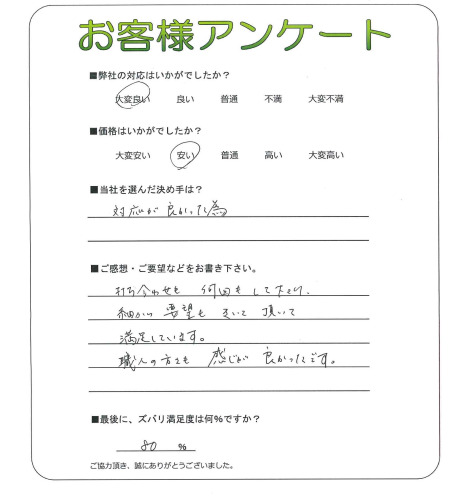 お客様アンケート
■弊社の対応はいかがでしたか？
大変良い 良い 普通 不満 大変不満
■価格はいかがでしたか？
大変安い 安い 普通 高い 大変高い
■当社を選んだ決め手は？
対応が良かった為
■ご感想・ご要望などをお書き下さい。
打ち合わせも 何回もして下さり、
細かい要望もきいて頂いて
満足しています。
職人の方々も 感じが良かったです。
■最後に、ズバリ満足度は何%ですか？
80 %
ご協力頂き、誠にありがとうございました。